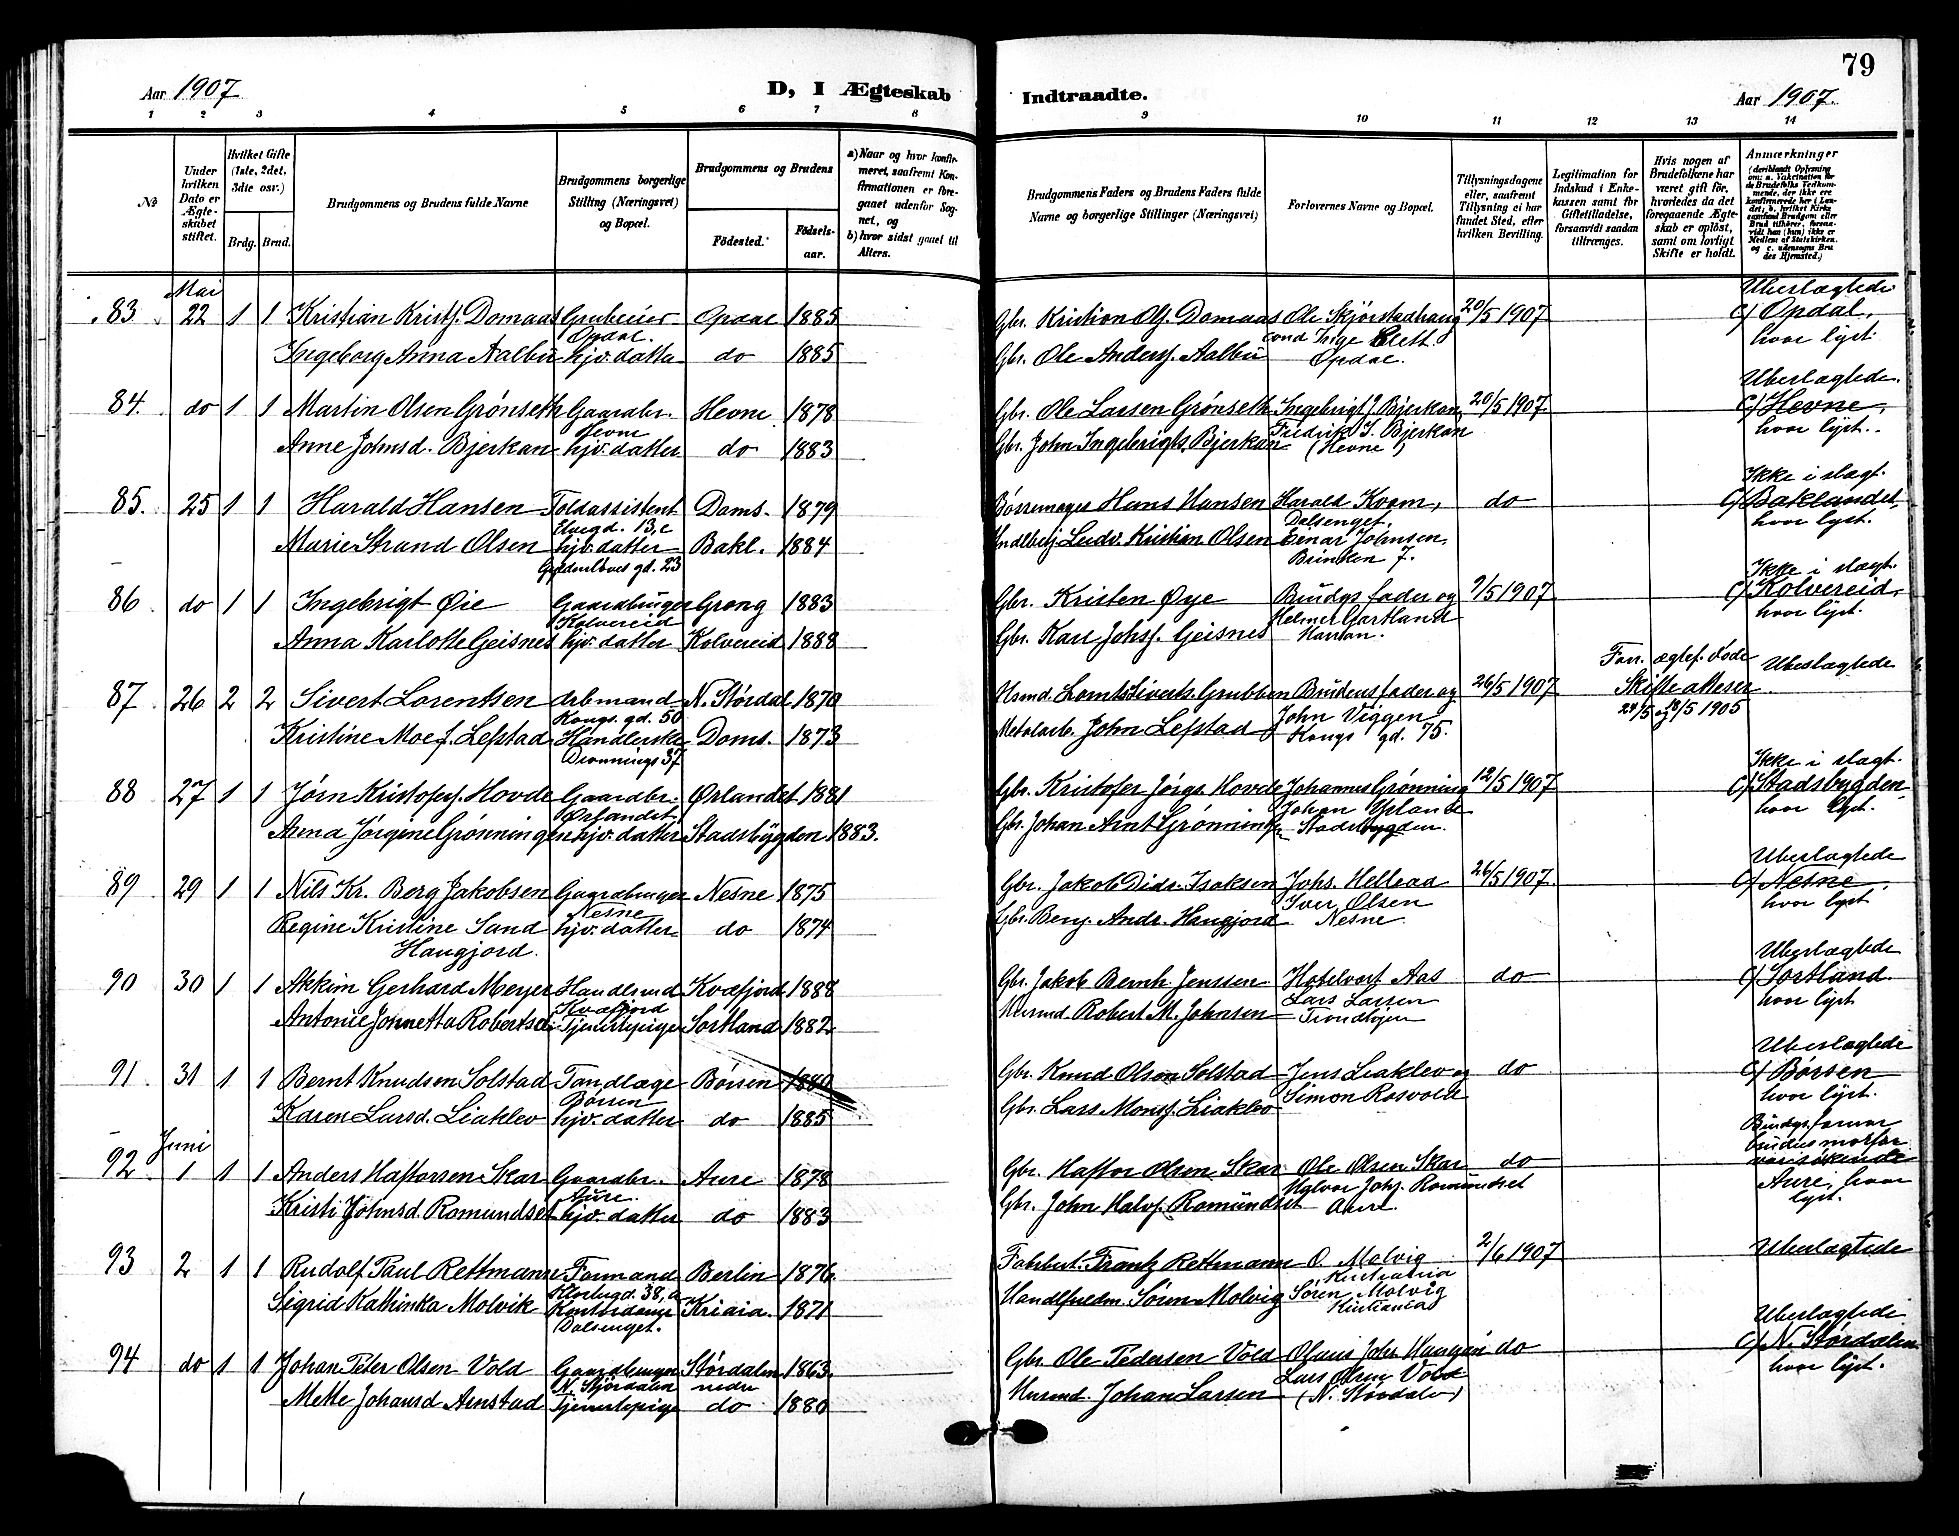 79
Aar 1907
D, I Ægteskab
Indtraadte.
Aar 1907.
1 2 3 4 5 6 7 8
9 10 11 12 13 14
No
Under hvilken Dato er Ægteskabet stiftet.
Hvilket Gifte (1ste, 2det, 3die osv.)
Brdg. Brud.
Brudgommens og Brudens fulde Navne
Brudgommens borgerlige Stilling (Næringsvei) og Bopæl.
Brudgommens og Brudens
Fødested. Fødsels-aar.
a) Naar og hvor konfirmeret, saafremt Konfirmationen er foregaaet udenfor Sognet, og
b) hvor sidst gaaet til Alters.
Brudgommens Faders og Brudens Faders fulde Navne og borgerlige Stillinger (Næringsvei)
Forlovernes Navne og Bopæl.
Tillysningsdagene eller, saafremt Tillysning ei har fundet Sted, efter hvilken Bevilling.
Legitimation for Indskud i Enkekassen samt for Giftetilladelse, forsaavidt saadan tiltrænges.
Hvis nogen af Brudefolkene har været gift før, hvorledes da det foregaaende Ægteskab er opløst, samt om lovligt Skifte er holdt.
Anmærkninger
Mai
83 22 1 1 Kristian Kristf. Domaas Grubeier Opdal 1885 Gbr. Kristian Ols. Domaas Ole Skjørstadhaug 20/5 1907 Ubeslægtede
Opdal. c/ Opdal,
Ingeborg Anna Aalbu hjv. datter do 1885 Gbr. Ole Andersf. Aalbu Opdal. hvor lyst.
84. do 1 1 Martin Olsen Grønseth Gaardbr. Hevne 1878 Gbr. Ole Larsen Grønseth Ingebrigt J. Bjerkan 20/5 1907 Ubeslægtede.
Hevne Fredrik I. Bjerkan c/ Hevne,
Anne Johnsd. Bjerkan hjv. datter do 1883 Gbr. John Ingebrigts. Bjerkan (Hevne) hvor lyst.
85. 25 1 1 Harald Hansen Toldassistent Doms. 1879 Børsemager Hans Hansen Harald Kvam, do Ikke i slægt.
Elvegd. 13,c Dalsenget. c/ Baklandet,
Marie Strand Olsen hjv. datter Bakl. 1884 Ludv. Kristian Olsen Einar Johnsen, hvor lyst.
Gyldenløves gd. 23 Brinken 7.
86 do 1 1 Ingebrigt Øie Gaardbruger Grong 1883 Gbr. Kristen Øye Brudgs fader og 9/5 1907 Ikke i slægt.
Kolvereid Helmer Gartland c/ Kolvereid,
Anna Karlotte Geisnes hjv. datter Kolvereid 1888 Gbr. Karl Johsf. Geisnes Harran. hvor lyst.
87 26 2 2 Sivert Lorentsen Arbmand N. Størdal 1870 Hsmd. Lornts Siverts. Grubben Brudens fader og 26/5 1907 Forr. ægtef. døde Ubeslægtede
Kongs. gd. 50 John Viggen Skifteattester
Kristine Moe f. Lefstad Handlerske Doms. 1873 Metalarb. John Lefstad Kongs gd. 75. 24/5 og 18/5 1905
Dronnings 37
88 27 1 1 Jørn Kristofersf. Hovde Gaardbr. Ørlandet 1881 Gbr. Kristofer Jørgs. Hovde Johannes Grønning 12/5 1907 Ikke i slægt.
Ørlandet Johan c/ Stadsbygden,
Anna Jørgine Grønningen hjv. datter Stadsbygden 1883. Gbr. Johan Arnt Grønningen Stadsbygden. hvor lyst.
89 29 1 1 Nils Kr. Berg Jakobsen Gaardbruger Nesne 1875 Gbr. Jakob Didr. Isaksen Johs. Hellead 26/5 1907. Ubeslægtede
Nesne Iver Olsen c/ Nesne,
Regine Kristine Sand hjv. datter do 1874 Gbr. Benj. Andr. Haugjord Nesne. hvor lyst
Haugjord.
90 30 1 1 Akkim Gerhard Meyer Handlsmd Kvæfjord 1888 Gbr. Jakob Bernh. Jenssen Hotelvært Aas do Ubeslægtede
Kvæfjord Lars Larsen c/ Sortland.
Antonie Jonnetta Robertsd. Tjenestepige Sortland 1882 Husmd Robert M. Johnsen Trondhjem hvor lyst
91. 31 1 1 Bernt Knudsen Solstad Tandlæge Børsen 1880 Gbr. Knud Olsen Solstad Jens Liaklev og do Ubeslægtede
Børsen Simon Rosvold c/ Børsen
Karen Larsd. Liaklev hjv. datter do 1885 Gbr. Lars Monsf. Liaklev hvor lyst.
Juni
92 1 1 1 Anders Haftorsen Skar Gaardbr. Aure 1878 Gbr. Haftor Olsen Skar Ole Olsen Skar do Brudgs. farmor
Aure. Halvor Johsf. Romundset brudens morfar
Kristi Johnsd. Romundset hjv. datter do 1883 Gbr. John Halvf. Romundset Aure. var søskende
Aure, hvor
lyst.
93 2 1 1 Rudolf Paul Rettmann Formand Berlin 1876. Frantz Rettmann O. Molvig 2/6 1907 Ubeslægtede
Klostergd. 38,a Kristiania
Sigrid Kathinka Molvik Kontordame Kriaia. 1871 Søren Molvig Søren Molvig
Dalsenget. Kristiania
94 do 1 1 Johan Peter Olsen Vold Gaardbruger Størdalen 1863. Gbr. Ole Pedersen Vold Olaus Johs. Haugan do Ubeslægtede
N. Stjørdalen nedre Lars Olsen Vold c/ N. Størdalen
Mette Johansd Arnstad Tjenestepige do 1880 Husmd. Johan Larsen (N. Størdalen) hvor lyst.